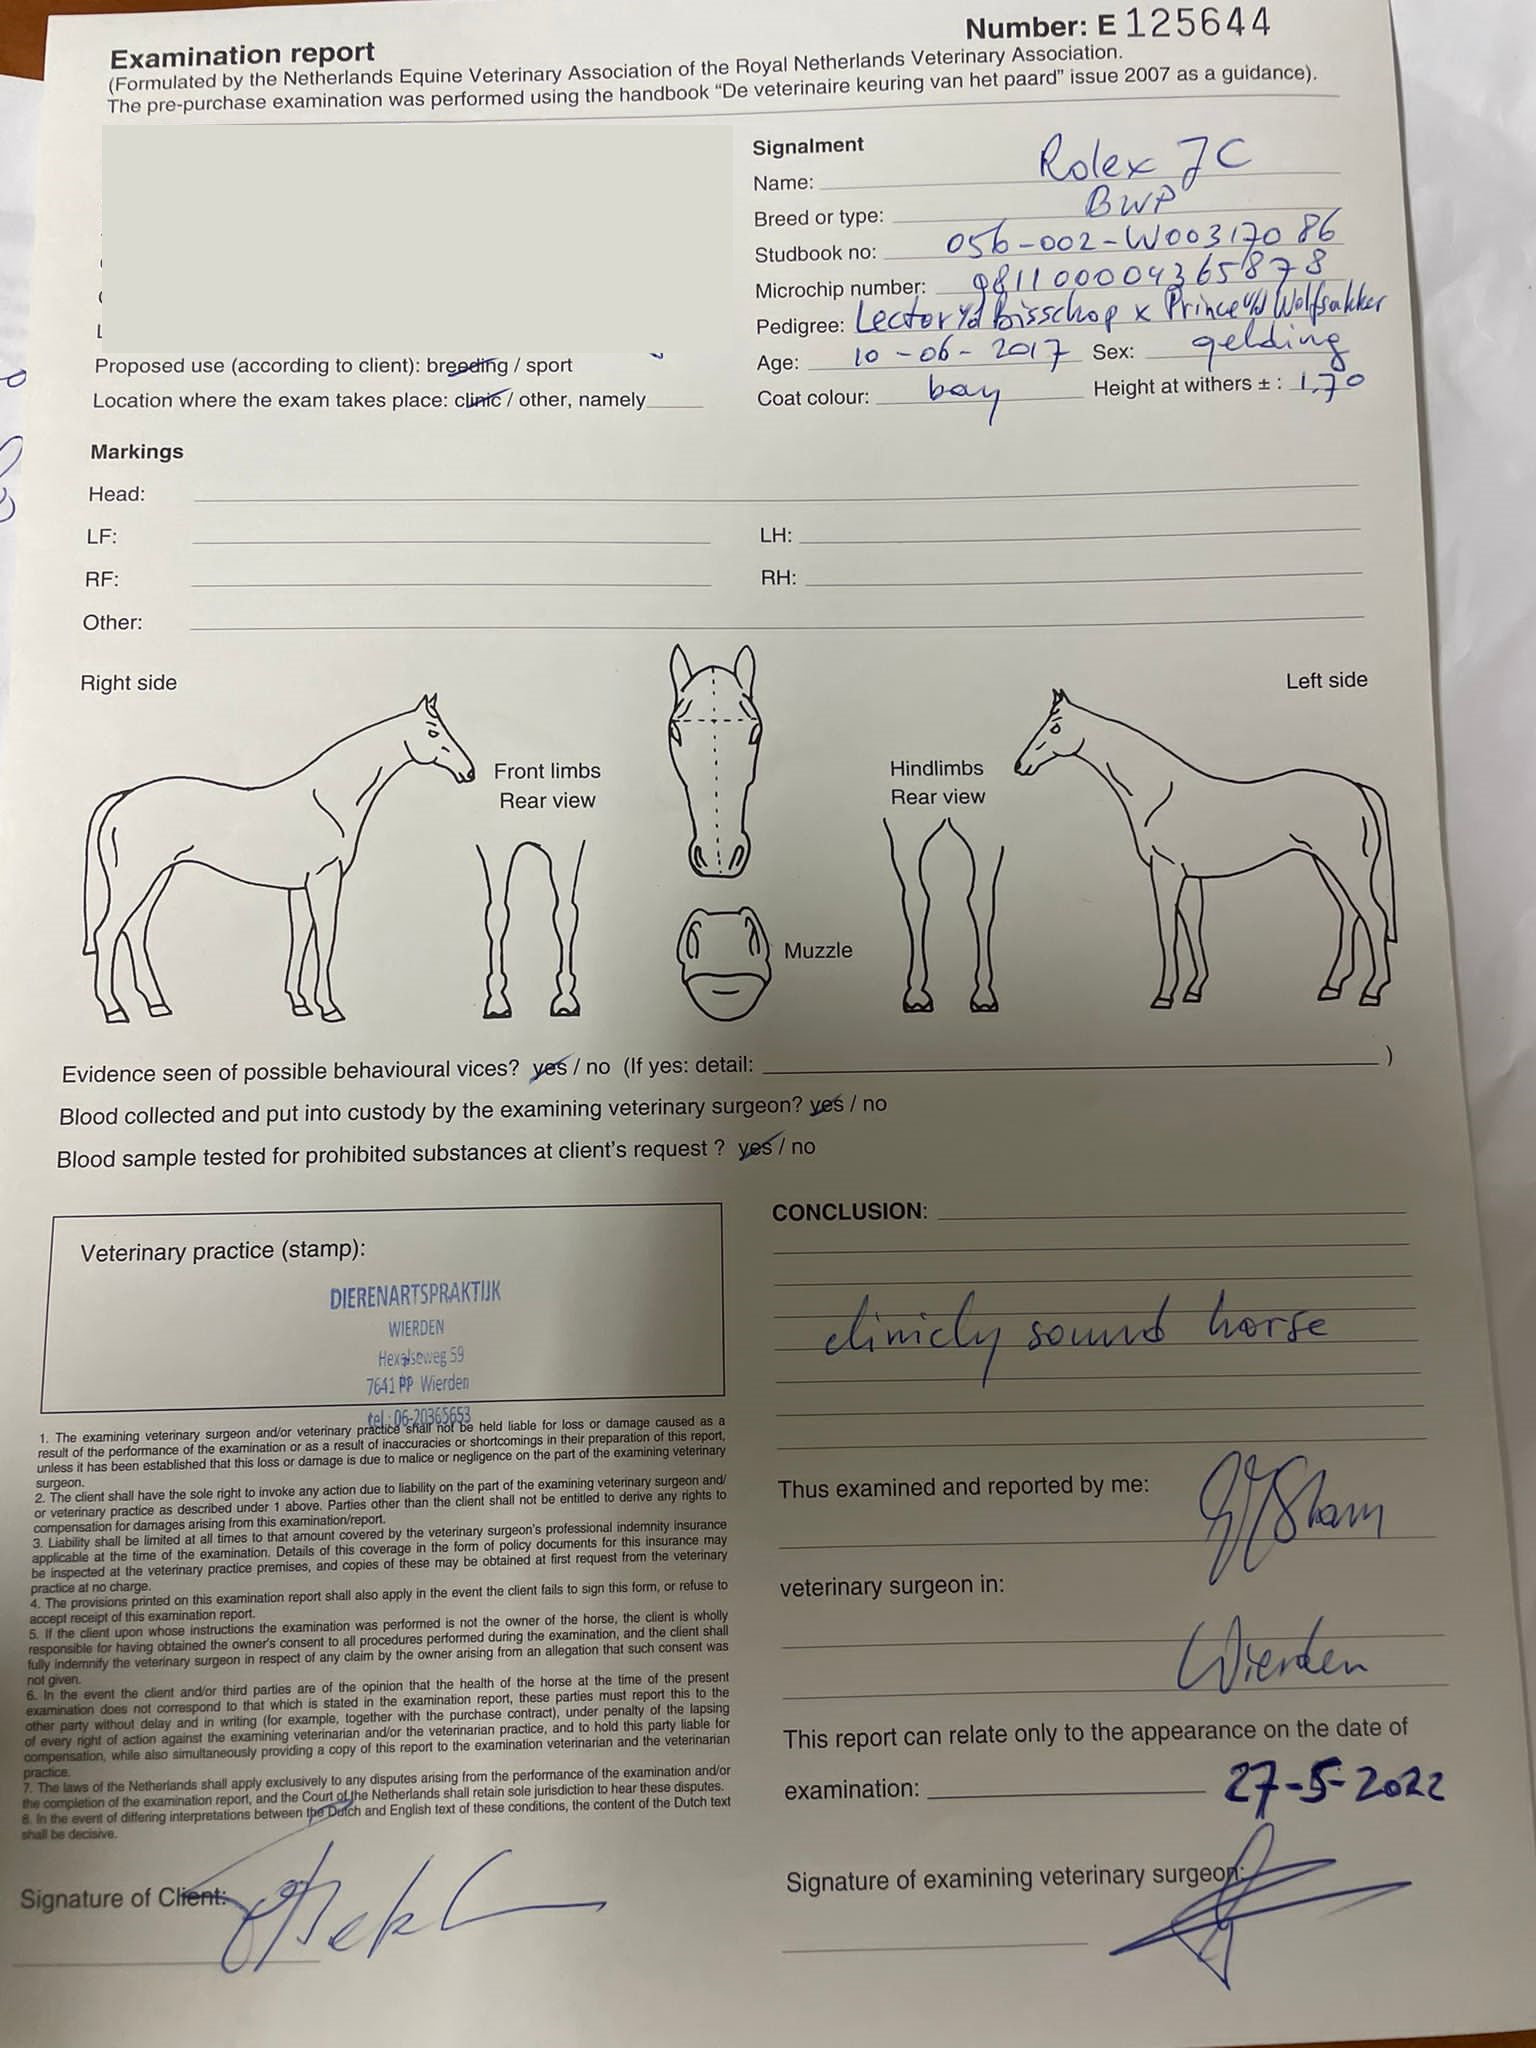 Number: E 125644
Examination report
(Formulated by the Netherlands Equine Veterinary Association of the Royal Netherlands Veterinary Association.
The pre-purchase examination was performed using the handbook “De veterinaire keuring van het paard” issue 2007 as a guidance).
Signalment
Name: Rolex JC
Breed or type: BWP
Studbook no: 056-002-W00317086
Microchip number: 981100004365878
Pedigree: Lector v/d Bisschop x Prince v/d Wolfsakker
Age: 10-06-2017 Sex: gelding
Coat colour: bay Height at withers ± : 1.70
Proposed use (according to client): breeding / sport
Location where the exam takes place: clinic / other, namely
Markings
Head:
LF: LH:
RF: RH:
Other:
Right side
Left side
Front limbs
Rear view
Hindlimbs
Rear view
Muzzle
Evidence seen of possible behavioural vices? yes / no (If yes: detail: )
Blood collected and put into custody by the examining veterinary surgeon? yes / no
Blood sample tested for prohibited substances at client's request ? yes / no
Veterinary practice (stamp):
DIERENARTSPRAKTIJK
WIERDEN
Hexelseweg 59
7641 PP Wierden
tel.: 06-20365653
1. The examining veterinary surgeon and/or veterinary practice shall not be held liable for loss or damage caused as a
result of the performance of the examination or as a result of inaccuracies or shortcomings in their preparation of this report,
unless it has been established that this loss or damage is due to malice or negligence on the part of the examining veterinary
surgeon.
2. The client shall have the sole right to invoke any action due to liability on the part of the examining veterinary surgeon and/
or veterinary practice as described under 1 above. Parties other than the client shall not be entitled to derive any rights to
compensation for damages arising from this examination/report.
3. Liability shall be limited at all times to that amount covered by the veterinary surgeon's professional indemnity insurance
applicable at the time of the examination. Details of this coverage in the form of policy documents for this insurance may
be inspected at the veterinary practice premises, and copies of these may be obtained at first request from the veterinary
practice at no charge.
4. The provisions printed on this examination report shall also apply in the event the client fails to sign this form, or refuse to
accept receipt of this examination report.
5. If the client upon whose instructions the examination was performed is not the owner of the horse, the client is wholly
responsible for having obtained the owner's consent to all procedures performed during the examination, and the client shall
fully indemnify the veterinary surgeon in respect of any claim by the owner arising from an allegation that such consent was
not given.
6. In the event the client and/or third parties are of the opinion that the health of the horse at the time of the present
examination does not correspond to that which is stated in the examination report, these parties must report this to the
other party without delay and in writing (for example, together with the purchase contract), under penalty of the lapsing
of every right of action against the examining veterinarian and/or the veterinarian practice, and to hold this party liable for
compensation, while also simultaneously providing a copy of this report to the examination veterinarian and the veterinarian
practice.
7. The laws of the Netherlands shall apply exclusively to any disputes arising from the performance of the examination and/or
the completion of the examination report, and the Court of the Netherlands shall retain sole jurisdiction to hear these disputes.
8. In the event of differing interpretations between the Dutch and English text of these conditions, the content of the Dutch text
shall be decisive.
Signature of Client:
CONCLUSION:
clinicly sound horse
Thus examined and reported by me:
veterinary surgeon in:
Wierden
This report can relate only to the appearance on the date of
examination: 27-5-2022
Signature of examining veterinary surgeon: